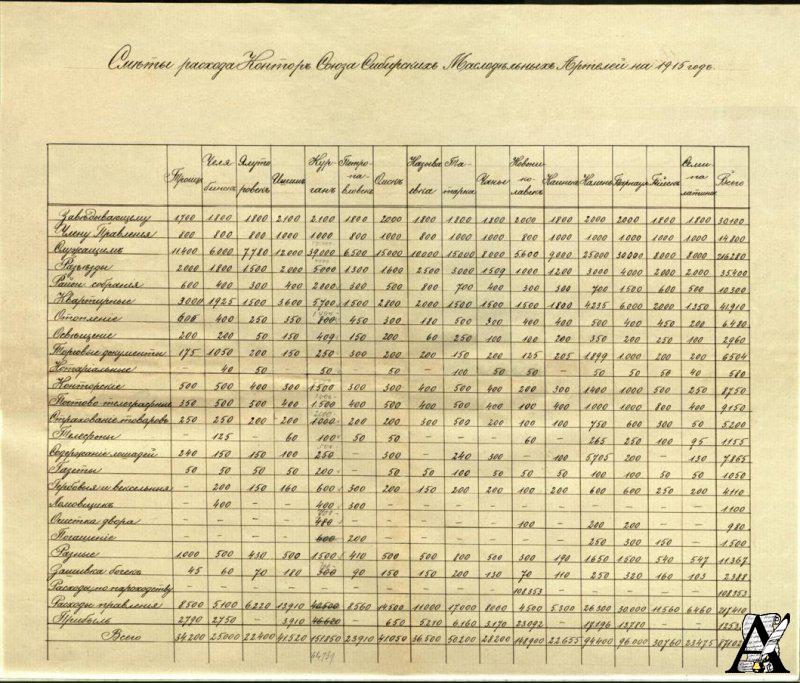 Смѣты расхода Конторъ Союза Сибирскихъ Маслодѣльныхъ Артелей на 1915 годъ.
Троицк Челябинскъ Ялуторовскъ Ишимъ Курганъ Петропавловскъ Омскъ Называевка Татарка Чаны Новониколаевскъ Каинскъ Камень Барнаулъ Бійскъ Семипалатинскъ Всего
Завѣдывающему 2700 1800 1800 2100 2100 1800 2000 1800 1800 1800 2000 1800 2000 2000 1800 1800 30100
Члену Правленія 800 800 800 1000 1000 800 1000 800 1000 1000 800 1000 1000 1000 1000 1000 14800
Служащимъ 11400 6000 7780 12000 39000 6500 15000 10000 15000 8000 5600 9000 25000 30000 8000 8000 216280
Разъѣзды 2000 1800 1500 2000 5000 1300 1600 2500 3000 1500 1000 1200 3000 4000 2000 2000 35400
Район. собранія 600 400 300 400 2000 300 500 800 700 400 300 300 700 1500 600 500 10300
Квартирные 3000 1925 1500 3600 5700 1500 2800 2000 1500 1500 1500 1800 4235 6000 2000 1350 41910
Отопленіе 600 400 250 350 800 450 300 180 500 300 400 400 500 400 450 200 6480
Освѣщеніе 200 200 50 150 409 150 200 60 250 100 100 200 350 200 250 100 2960
Торговые документы 175 1050 200 150 250 300 200 200 150 200 125 205 1899 1000 200 200 6504
Нотаріальные – 40 50 – 50 – 50 – 100 50 50 – 50 50 50 40 580
Конторскіе 500 500 400 300 1500 300 300 400 500 400 200 300 1400 1000 500 250 8750
Почтово-телеграфные 350 500 500 400 1500 400 500 400 500 400 100 400 1000 1000 800 400 9150
Страхованіе товаровъ 250 250 200 200 1000 200 200 300 500 200 100 100 750 600 300 50 5200
Телефоны – 125 – 60 100 50 50 – – – 60 – 265 250 100 95 1155
Содержаніе лошадей 240 150 150 100 250 – 300 – 240 300 – 100 5705 200 – 130 7865
Газеты 50 50 50 50 200 – 50 50 100 50 50 50 100 100 50 50 1050
Гербовыя и вексельныя – 200 150 160 600 300 200 150 200 200 100 200 600 600 250 200 4110
Ломовщикъ – 400 – – 400 300 – – – – – – – – – – 1100
Очистка двора – – – – 480 – – – – – 100 – 200 200 – – 980
Погашеніе – – – – 600 200 – – – – – – 250 300 150 – 1500
Разные 1000 500 430 500 1500 410 500 500 800 500 300 190 1650 1500 540 547 11367
Зашивка бочекъ 45 60 70 180 300 90 150 150 200 130 70 110 250 320 160 103 2388
Расходы по пароходству 108353 108353
Расходы правленія 8500 5100 6220 13910 8560 14500 11000 17000 8000 4500 5300 26300 30000 11560 6460 217410
Прибыль 2790 2750 3910 – 650 5210 6160 3170 23092 – 17196 13780 – –
Всего 34200 25000 22400 41520 151850 23910 41050 36500 50200 28200 22655 94400 96000 30760 23475